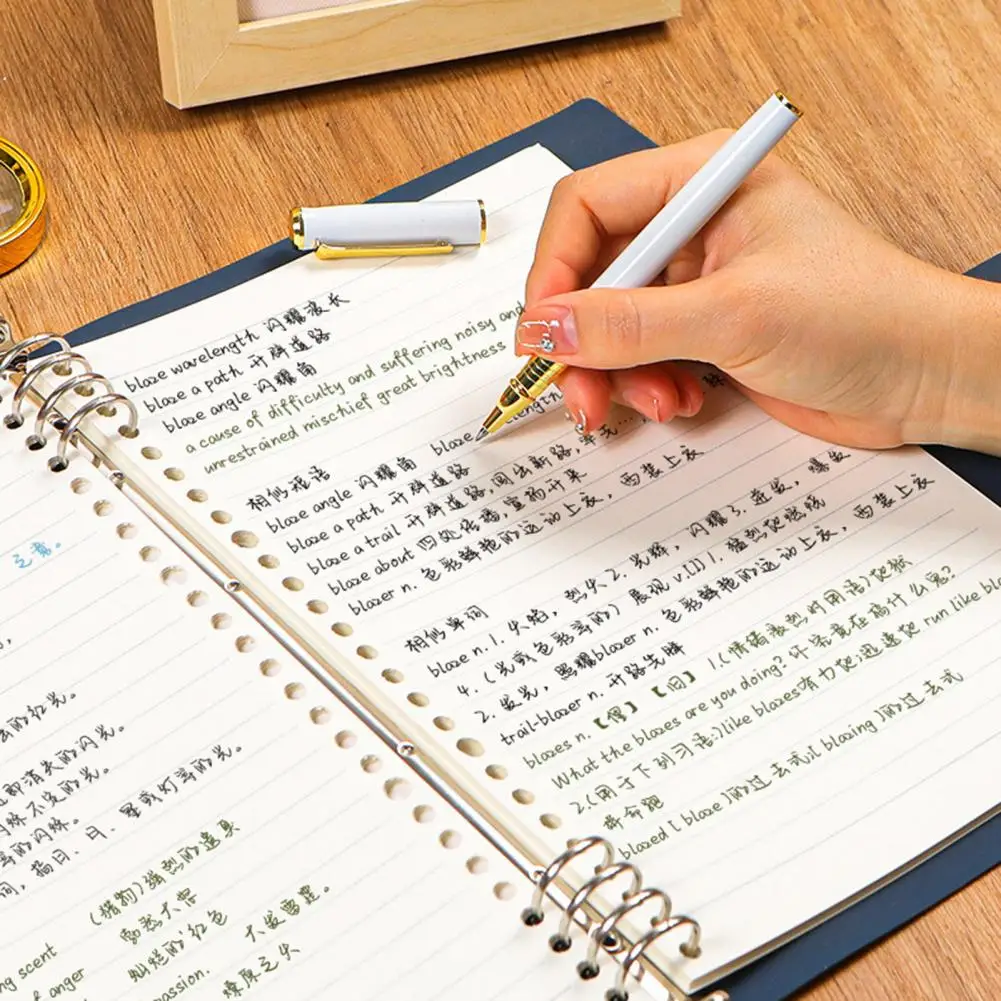 blaze wavelength 闪耀波长
blaze a path 开辟道路
blaze angle 闪耀角
a cause of difficulty and suffering noisy and
unrestrained mischief great brightness
相似短语 blaze
blaze angle 闪耀角
blaze a path 开辟道路, 闯出新路, 率先…
blaze a trail 开辟道路
blaze about 四处传播, 宣扬开来
blazer n. 色彩鲜艳的运动上衣, 西装上衣
相似单词
blaze n. 1. 火焰, 烈火 2. 光辉, 闪耀 3. 迸发, 爆发
4. (光或色彩等的) 展现 v.[I] 1. 猛烈地燃烧
2. 发光, 照耀blazer n. 色彩鲜艳的运动上衣, 西装上衣
trail-blazer n. 开路先锋
blazes n. 【俚】【旧】 1.(情绪激烈时用语)地狱
What the blazes are you doing? 你究竟在搞什么鬼?
2.(用于下列习语)like blazes有力地;迅速地 run like
拼命跑
blazed [ blaze ]的过去式;[ blazing ]的过去式
之意。
的红光。
消失的闪光。
不定的光。
的闪烁。
日、月、星或灯等的光。
(猎物)强烈的遗臭
scent
& anger 大怒
灿烂的红色 大发雷霆。
passion. 燎原之火